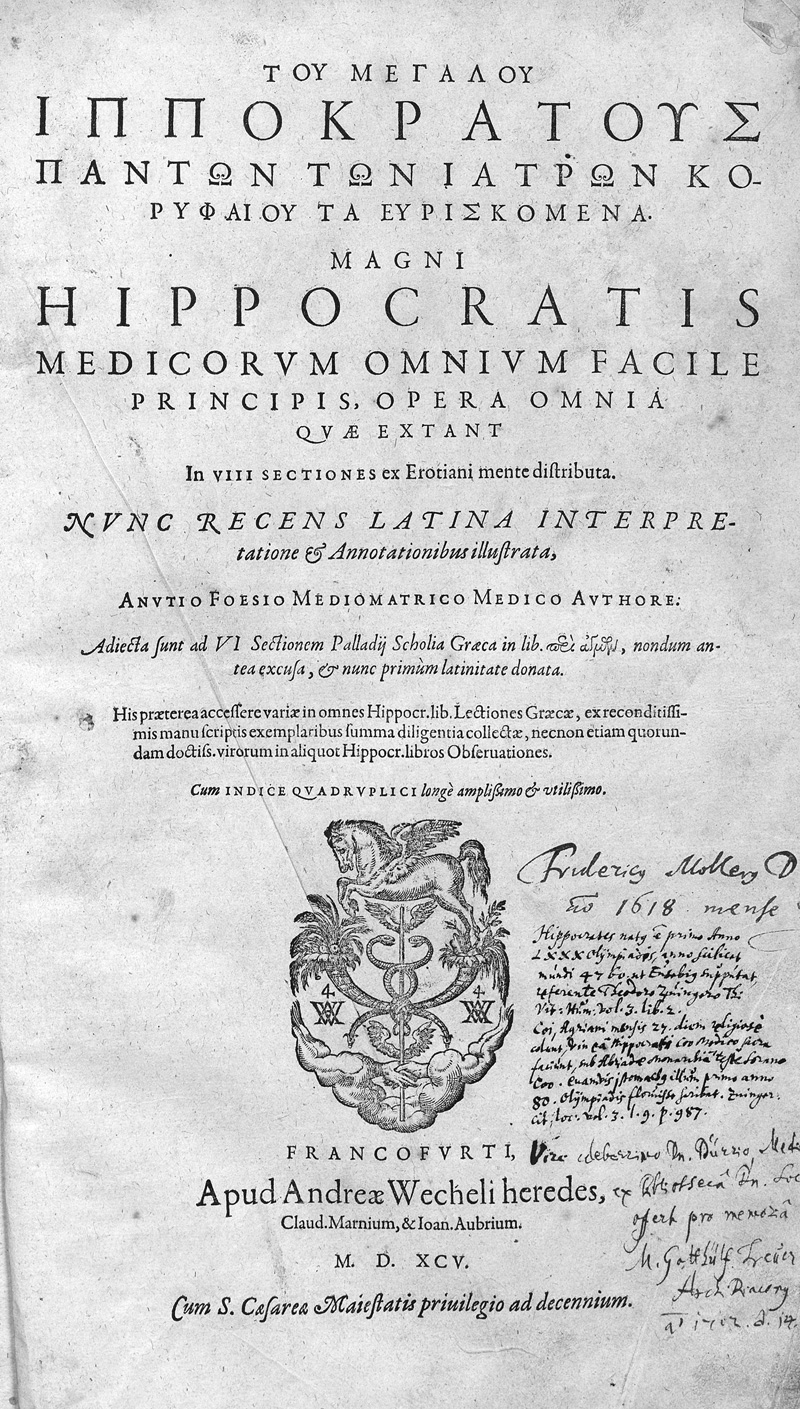 ΤΟΥ ΜΕΓΑΛΟΥ
ΙΠΠΟΚΡΑΤΟΥΣ
ΠΑΝΤΩΝ ΤΩΝ ΙΑΤΡΩΝ ΚΟ-
ΡΥΦΑΙΟΥ ΤΑ ΕΥΡΙΣΚΟΜΕΝΑ.
MAGNI
HIPPOCRATIS
MEDICORVM OMNIVM FACILE
PRINCIPIS, OPERA OMNIA
QVÆ EXTANT
In VIII SECTIONES ex Erotiani mente distributa.
NVNC RECENS LATINA INTERPRE-
tatione & Annotationibus illustrata,
ANVTIO FOESIO MEDIOMATRICO MEDICO AVTHORE.
Adiecta sunt ad VI Sectionem Palladij Scholia Græca in lib. περὶ ἀγμῶν, nondum an-
tea excusa, & nunc primùm latinitate donata.
His præterea accessere variæ in omnes Hippocr. lib. Lectiones Græcæ, ex reconditissi-
mis manuscriptis exemplaribus summa diligentia collectæ, necnon etiam quorun-
dam doctiss. virorum in aliquot Hippocr. libros Obseruationes.
Cum INDICE QVADRVPLICI longè amplissimo & vtilissimo.
Friderici Molleri D
1618 mense
Hippocrates primo Anno
LXXX Olympiados, anno scilicet
mundi
referente Theodoro Zuingero
vol. 3. lib. 2.
mensis 27. diem
Hippocrati Coo Medico
primo anno
80. Olympiadis Zuinger.
loc. vol. 3. l. 9. p. 987.
4 4
FRANCOFVRTI,
Apud Andreæ Wecheli heredes,
Claud. Marnium, & Ioan. Aubrium.
M. D. XCV.
Cum S. Cæsareæ Maiestatis priuilegio ad decennium.
Dn.
ex Bibliothecâ Dn.
offert pro
M. Gotthülf
Archi Diacony